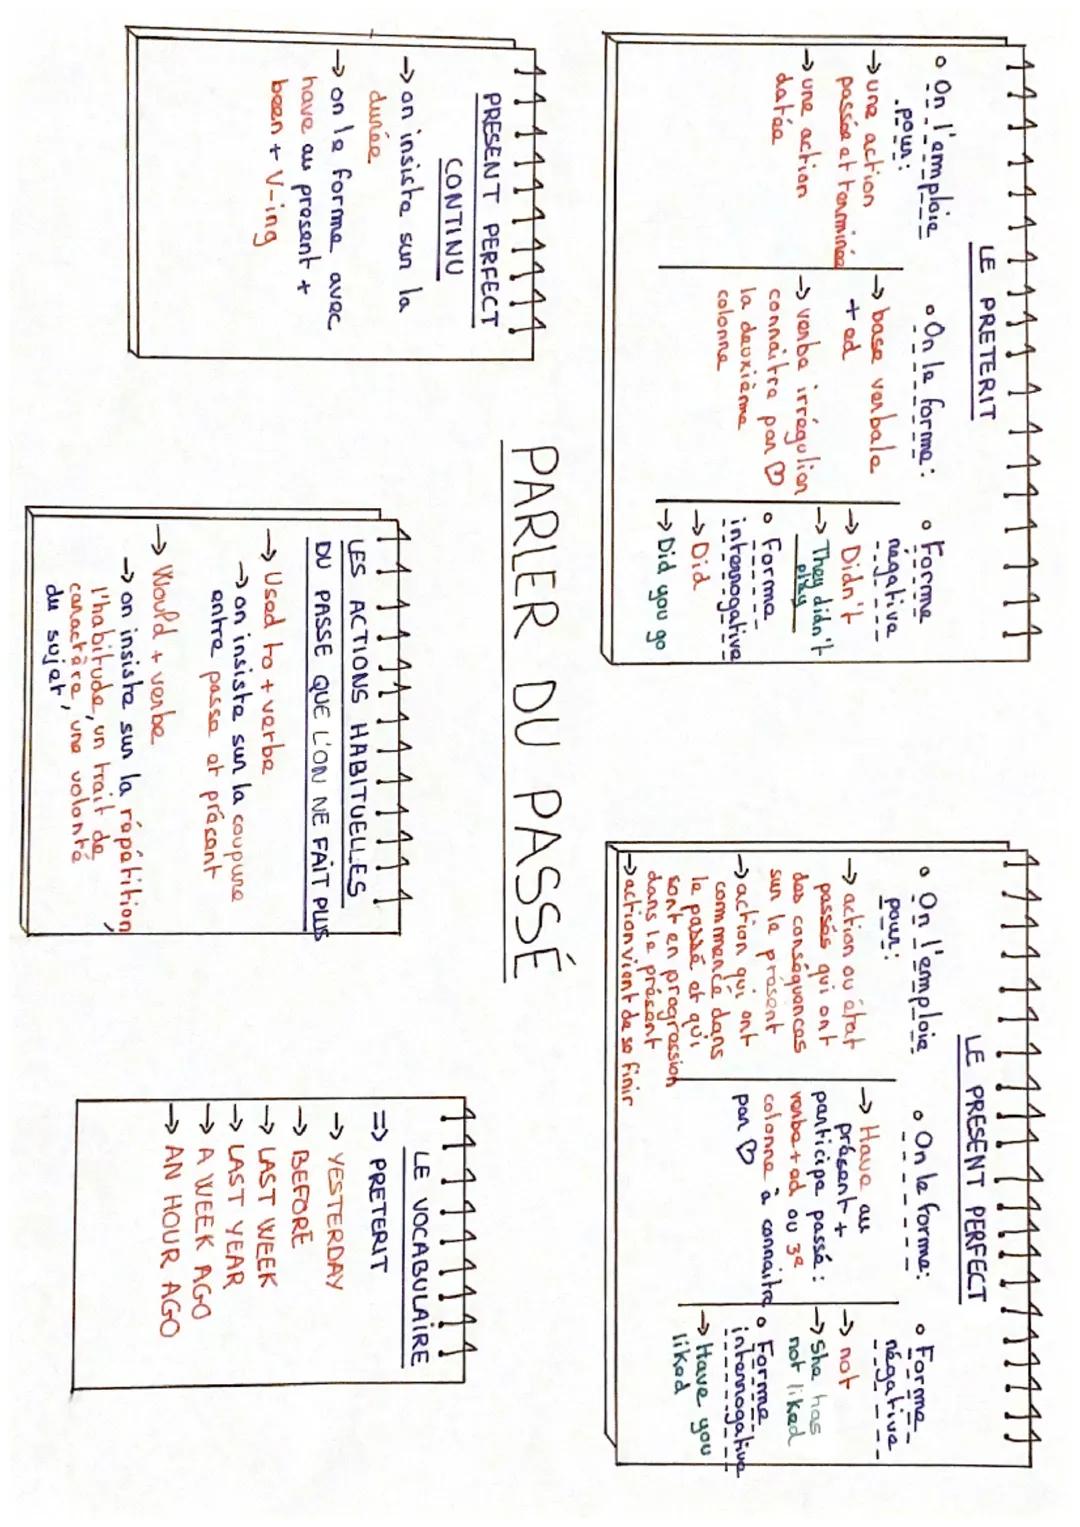 LE PRETERIT
• On l'emploie
pour:
→ une action
passée et terminée
→ une action
datée
• On le forme:
→ base verbale
+ ed
→ verbe irrégulier
connaitre par ♡
la deuxième
colonne
• Forme
négative
→ Didn't
→ They didn't
play
• Forme
interrogative
→ Did
→ Did you go
LE PRESENT PERFECT
• On l'emploie
pour:
→ action ou état
passés qui ont
des conséquences
sur le présent
→ action qui ont
commencé dans
le passé et qui
sont en progression
dans le présent
→ action vient de se finir
• On le forme:
→ Have au
présent +
participe passé:
verbe + ed ou 3e
colonne à connaitre
par ♡
• Forme
négative
→ not
→ She has
not liked
• Forme
interrogative
→ Have you
liked
PARLER DU PASSÉ
PRESENT PERFECT
CONTINU
→ on insiste sur la
durée
→ on le forme avec
have au present +
been + V-ing
LES ACTIONS HABITUELLES
DU PASSE QUE L'ON NE FAIT PLUS
→ Used to + verbe
→ on insiste sur la coupure
entre passe et présent
→ Would + verbe
→ on insiste sur la répétition,
l'habitude, un trait de
caractère, une volonté
du sujet
LE VOCABULAIRE
⇒ PRETERIT
→ YESTERDAY
→ BEFORE
→ LAST WEEK
→ LAST YEAR
→ A WEEK AGO
→ AN HOUR AGO